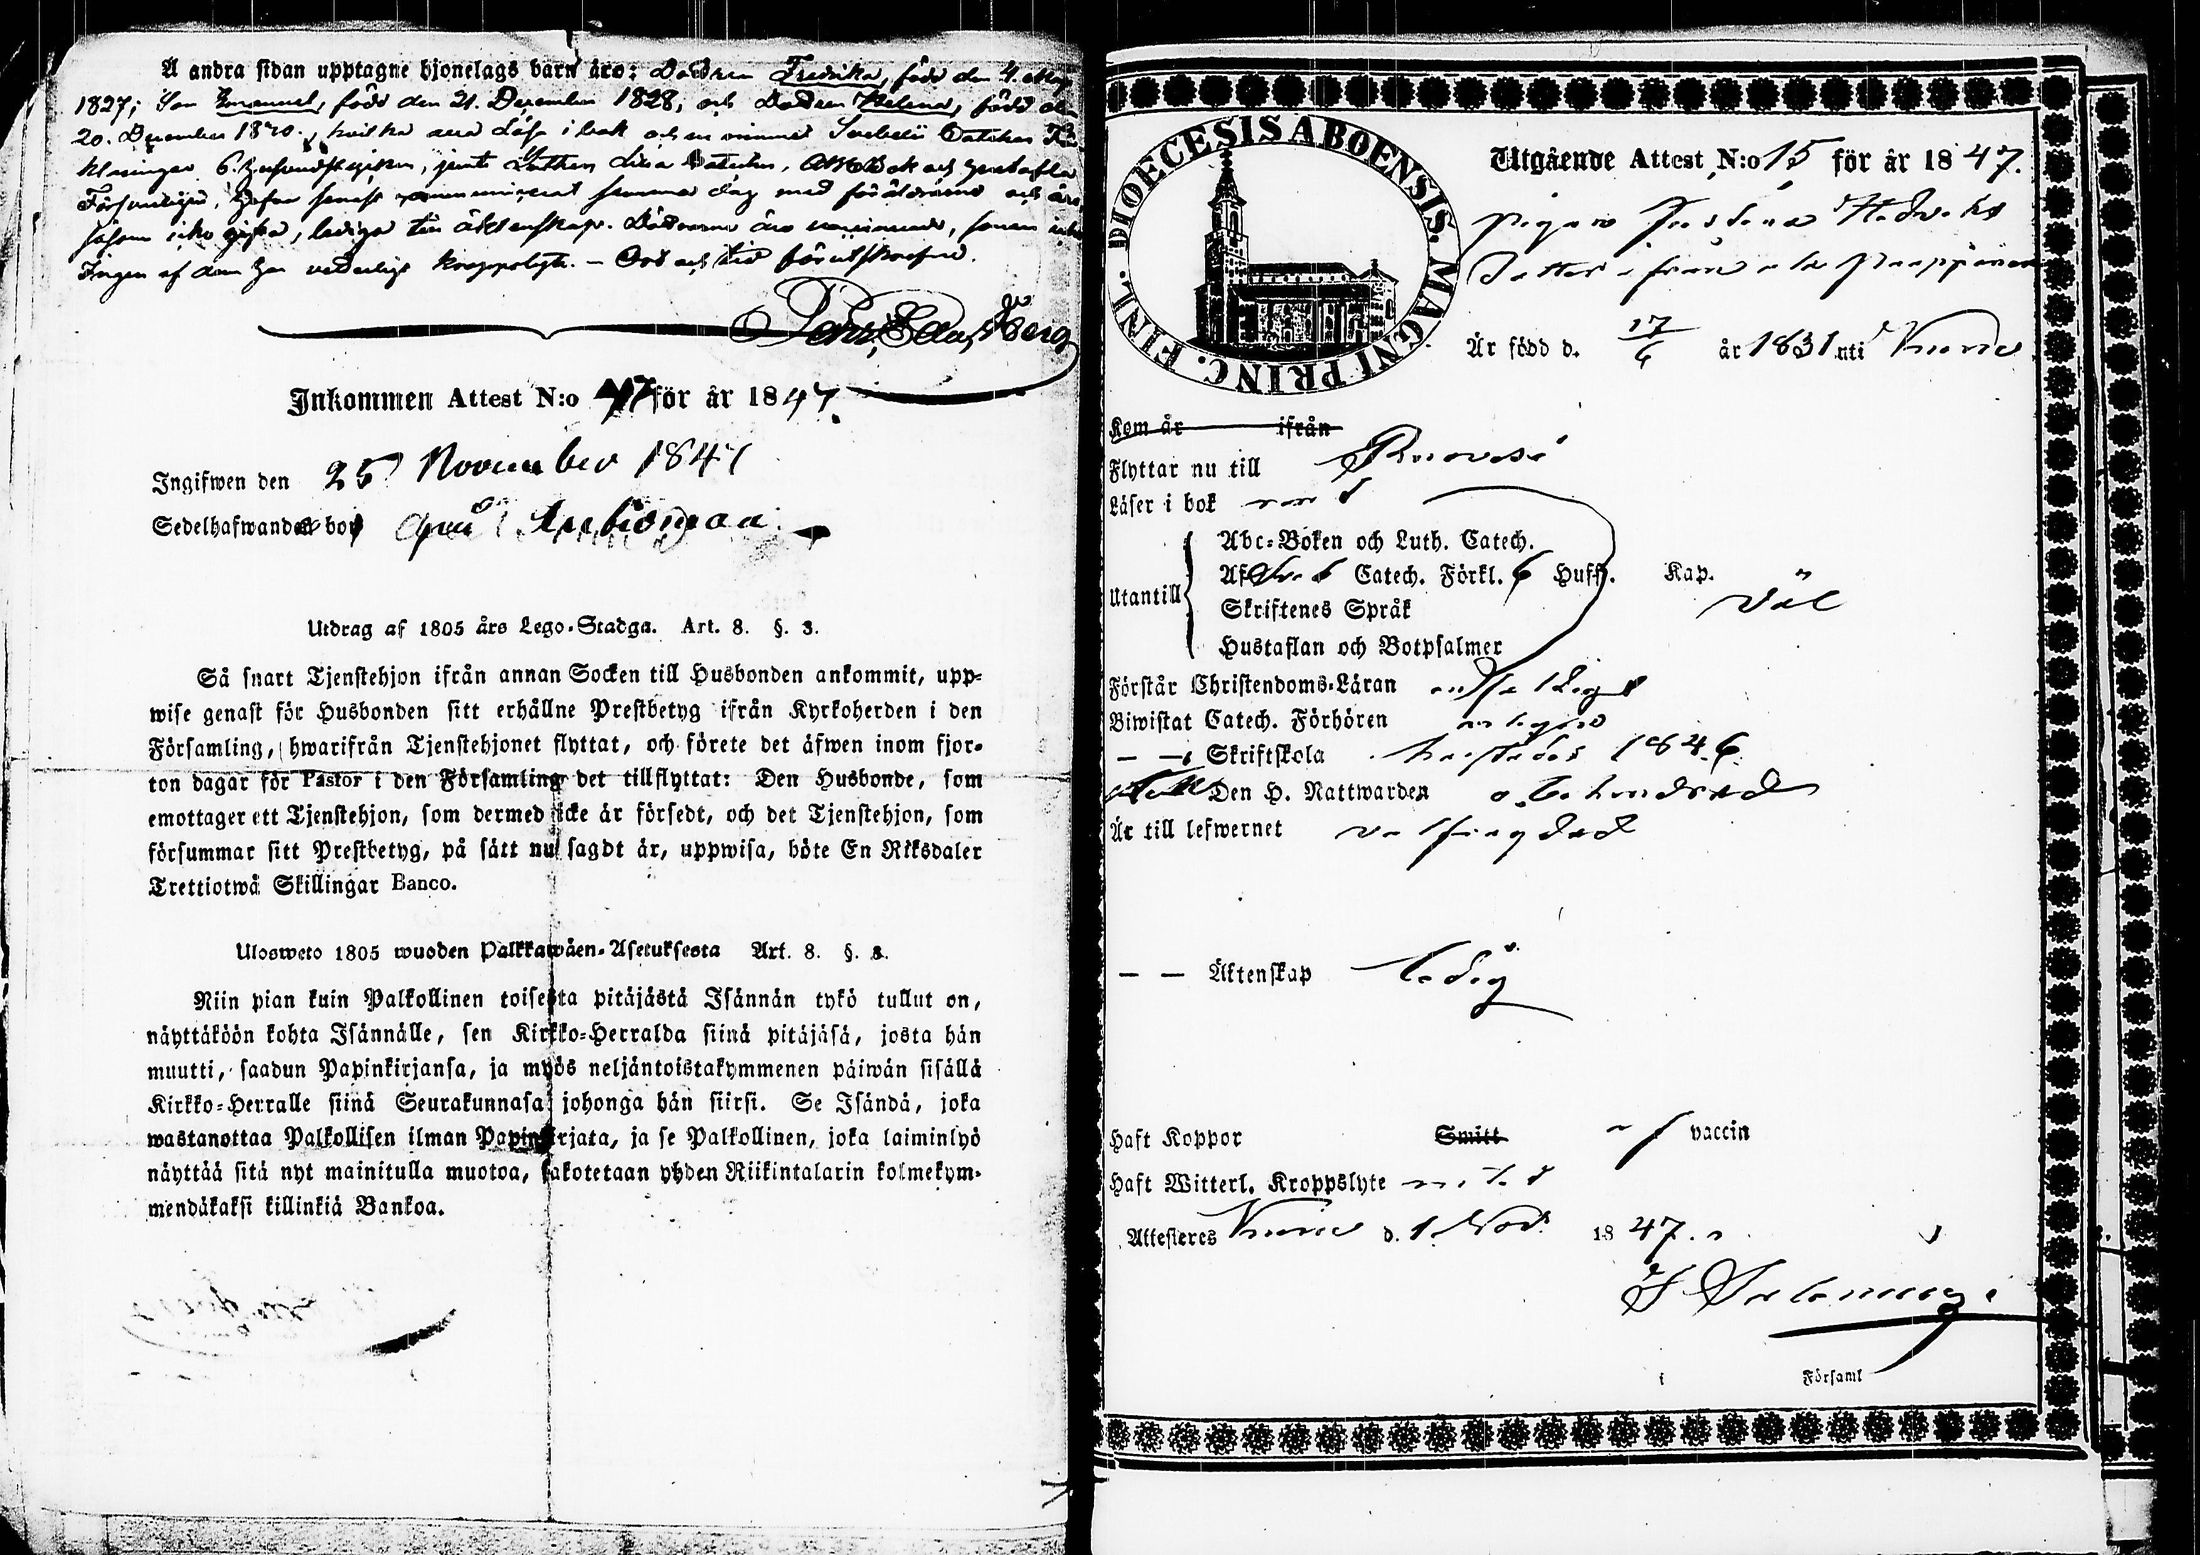 Å andra sidan upptagne hjonelags barn äro: Dottren Fredrika, född den 4. May
1827; Son Emanuel, född den 21. December 1828, och Dottren Helena, född den
20. December 1830, hvilka alla Läsa i bok och en minnes Svebelii Catches
klaringar 6. Hufvudstycken, jemte Luthers Lilla Cateches, Abc Bok och Hustafla
Försvarligen, Hafva senast communicerat samma dag med föräldrarne och äro
såsom icke gifta, lediga till äktenskap. Döttrarne äro vaccinerade, sonen icke
Ingen af dem har vederligt kroppslyte. – Ort och tid förutskrefne.
Inkommen Attest N:o 47 för år 1847.
Ingifwen den 25 November 1847
Sedelhafwanden bor
Utdrag af 1805 års Lego-Stadga. Art. 8. §. 3.
Så snart Tjenstehjon ifrån annan Socken till Husbonden ankommit, upp-
wise genast för Husbonden sitt erhållne Prestbetyg ifrån Kyrkoherden i den
Församling, hwarifrån Tjenstehjonet flyttat, och förete det äfwen inom fjor-
ton dagar för Pastor i den Församling det tillflyttat: Den Husbonde, som
emottager ett Tjenstehjon, som dermed icke är försedt, och det Tjenstehjon, som
försummar sitt Prestbetyg, på sätt nu sagdt är, uppwisa, böte En Riksdaler
Trettiotwå Skillingar Banco.
Ulosweto 1805 wuoden Palkkawäen-Asetuksesta Art. 8. §. 3.
Niin pian kuin Palkollinen toisesta pitäjästä Isännän tykö tullut on,
näyttäköön kohta Isännälle, sen Kirkko-Herralda siinä pitäjäsä, josta hän
muutti, saadun Papinkirjansa, ja myös neljäntoistakymmenen päiwän sisällä
Kirkko-Herralle siinä Seurakunnasa johonga hän siirsi. Se Isändä, joka
wastanottaa Palkollisen ilman Papinkirjata, ja se Palkollinen, joka laiminlyö
näyttää sitä nyt mainitulla muotoa, sakotetaan yhden Riikintalarin kolmekym-
mendäkaksi killinkiä Bankoa.
DIOECESIS ABOENSIS. MAGNI PRINC. FINL.
Utgående Attest N:o 15 för år 1847.
pigan Justina Hedvik
Dotter ifrån
Är född d. 17/6 år 1831 uti Kuru
Kom år ifrån
Flyttar nu till Ruovesi
Läser i bok
Utantill
Abc-Boken och Luth. Catech.
Af Sveb Catech. Förkl. 6 Huffs. Kap.
Skriftenes Språk
väl
Hustaflan och Botpsalmer
Förstår Christendoms-Läran
Biwistat Catech. Förhören
— — Skriftskola 1846
Den H. Nattwarden obehindrad
Är till lefwernet välfrägdad
— — Äktenskap ledig
Haft Koppor Smitt af vaccin
Haft Witterl. Kroppslyte
Attesteres Kuru d. 1 Nov. 1847.
i Församl